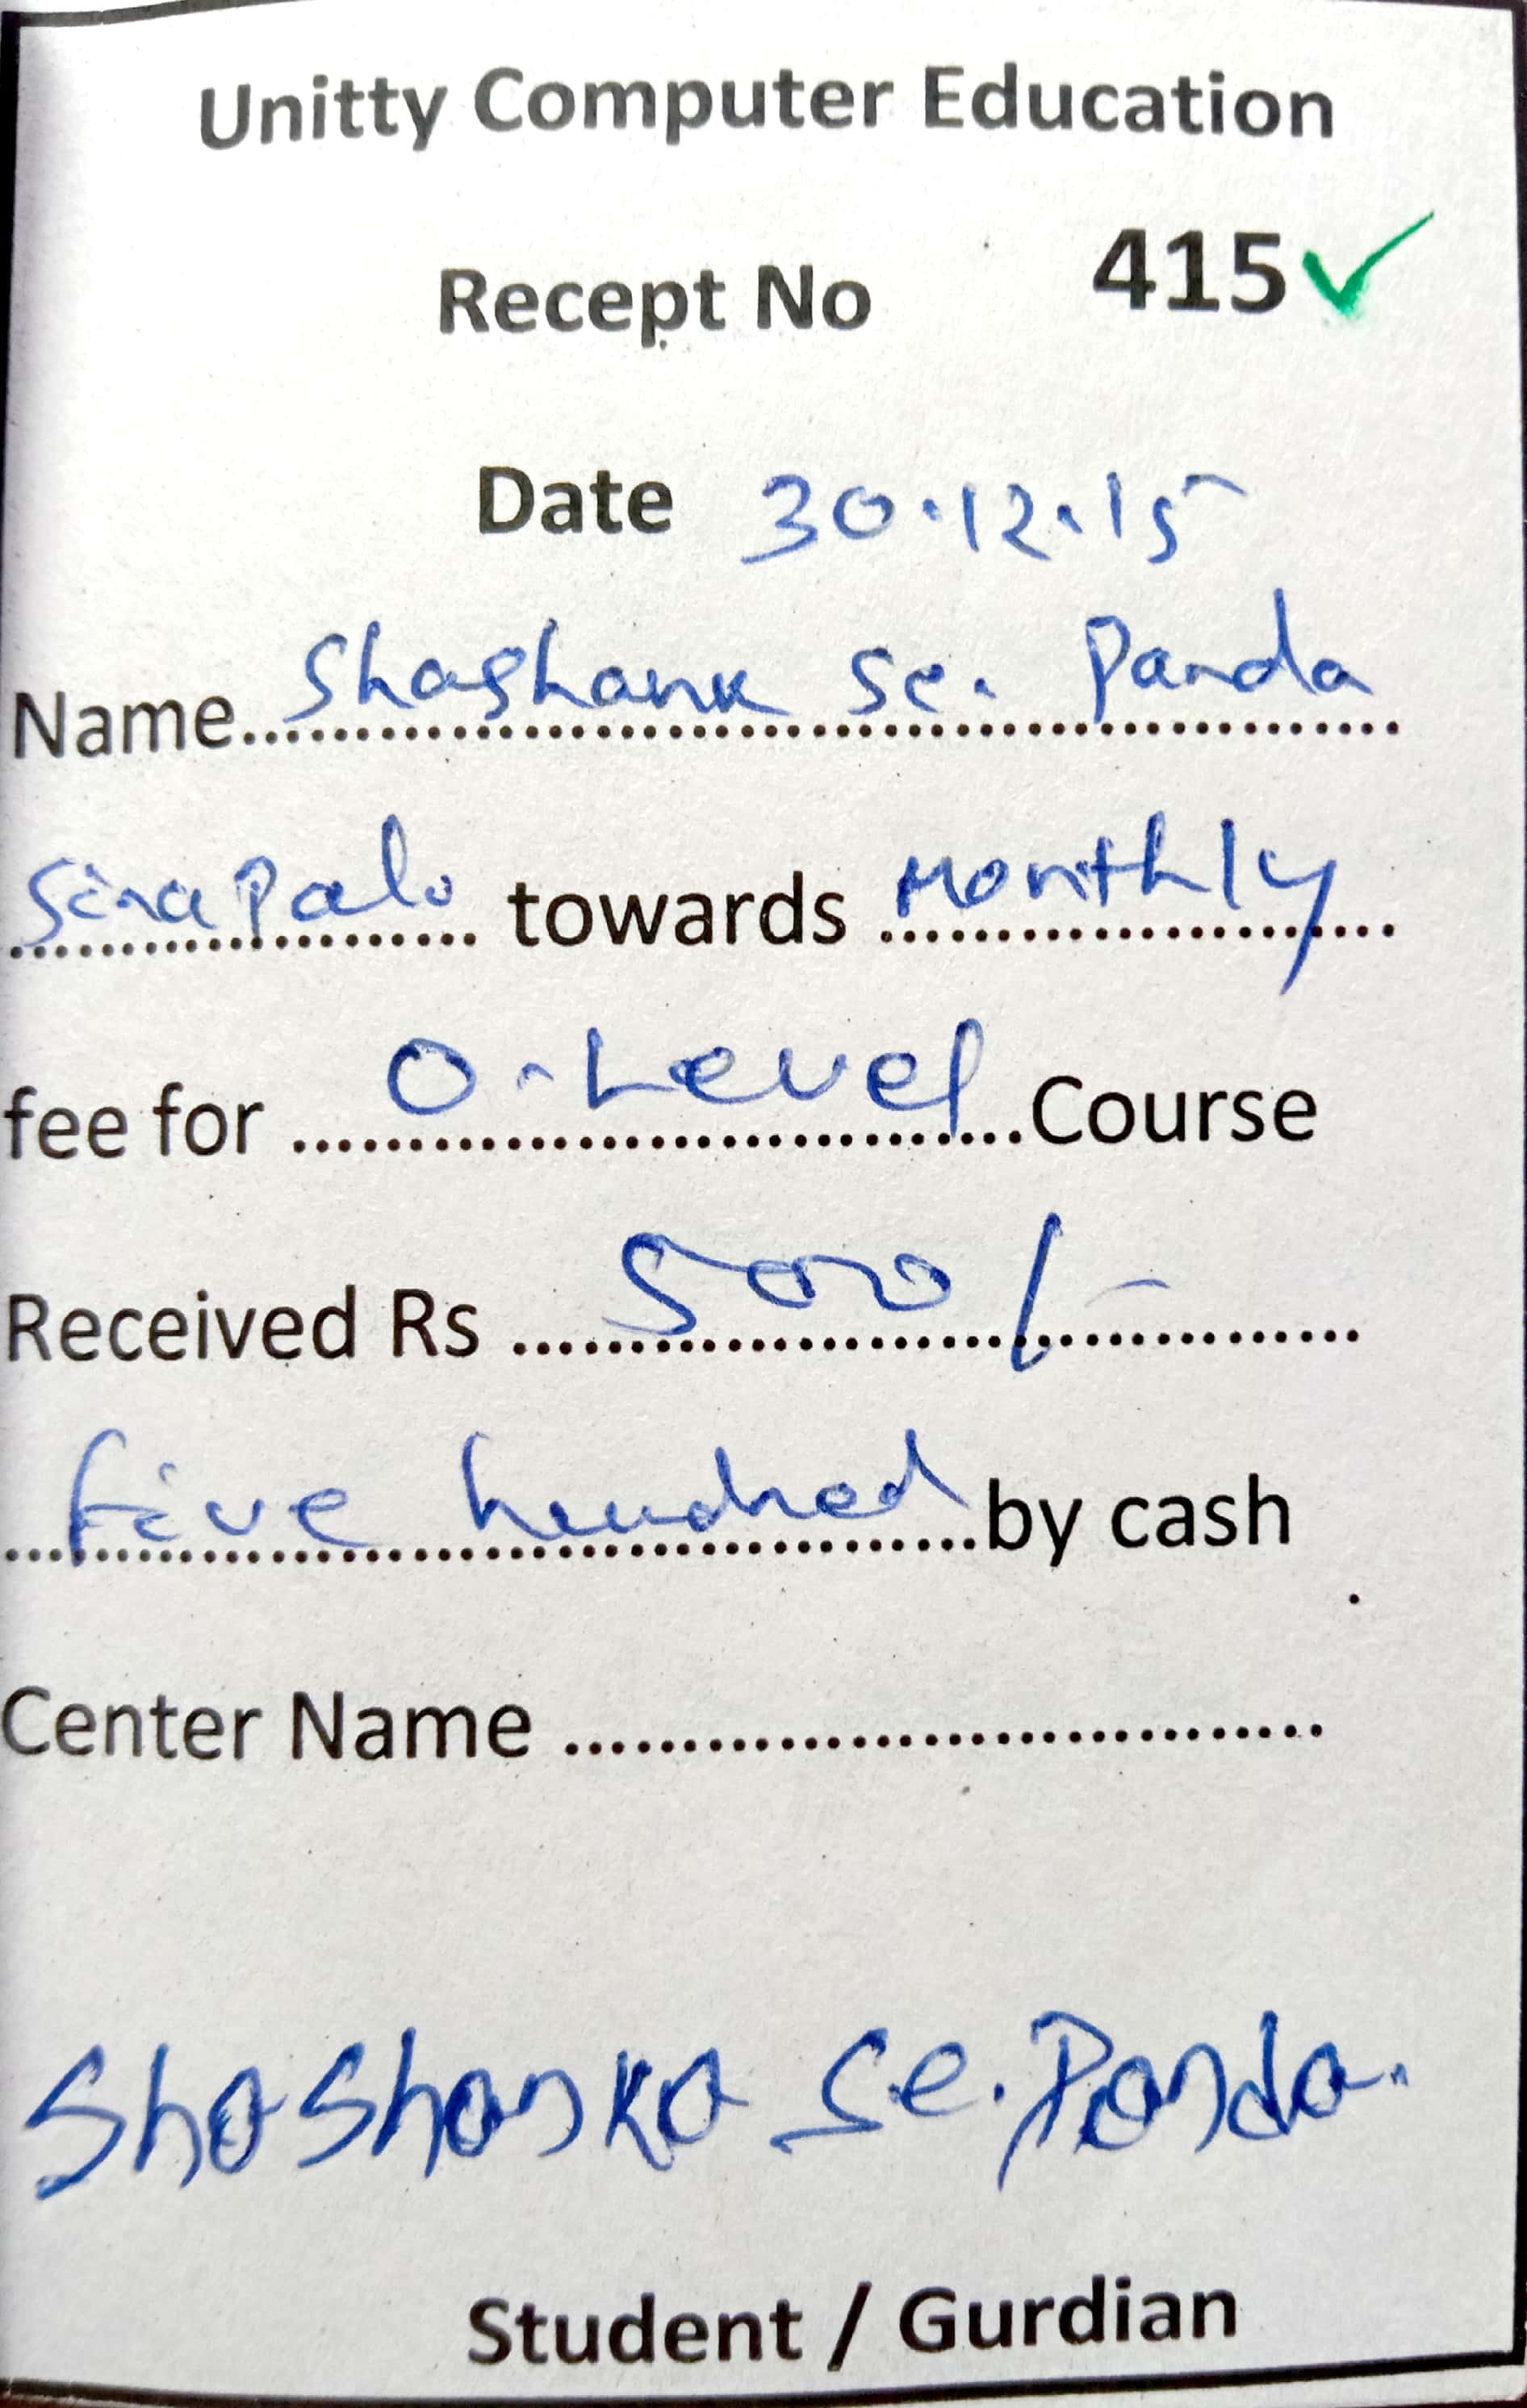 Unitty Computer Education
Recept No 415
Date 30.12.15
Name..................Shashank Sc. Panda
Sinapali towards Monthly
fee for O-Level Course
Received Rs 500/-
five hundred by cash
Center Name ................................
Shashanka Sc. Panda.
Student / Gurdian